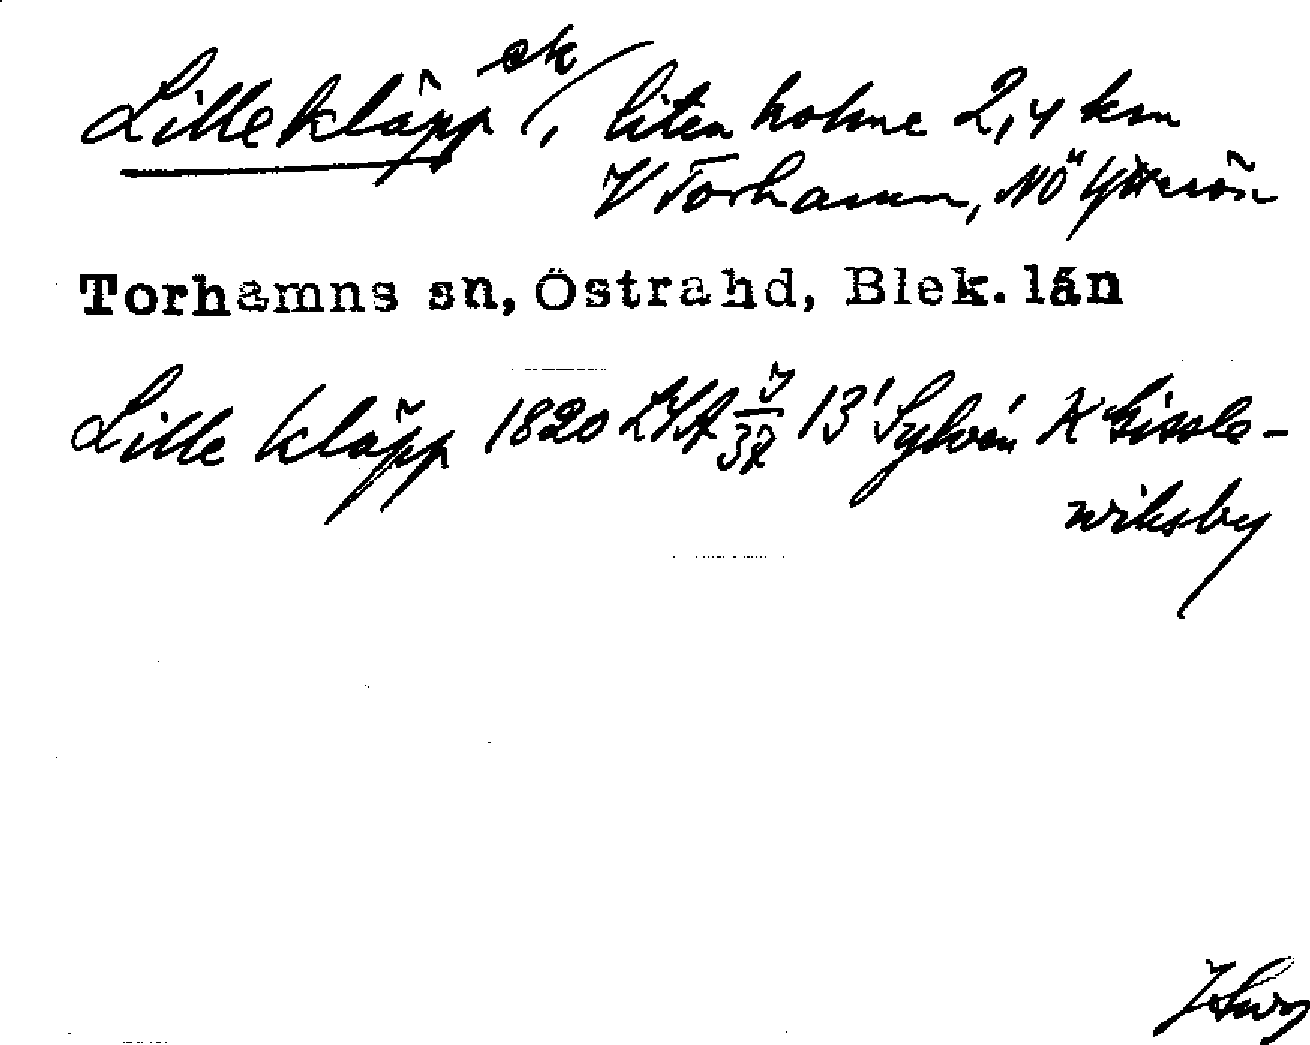 Lillekläpp ek, liten holme 2,4 km
V Torhamn, NÖ Ytterön
Torhamns sn, Östra hd, Blek. län
Lille kläpp 1820 LSA 32 13' Sylvén K Gissle-
wiksby